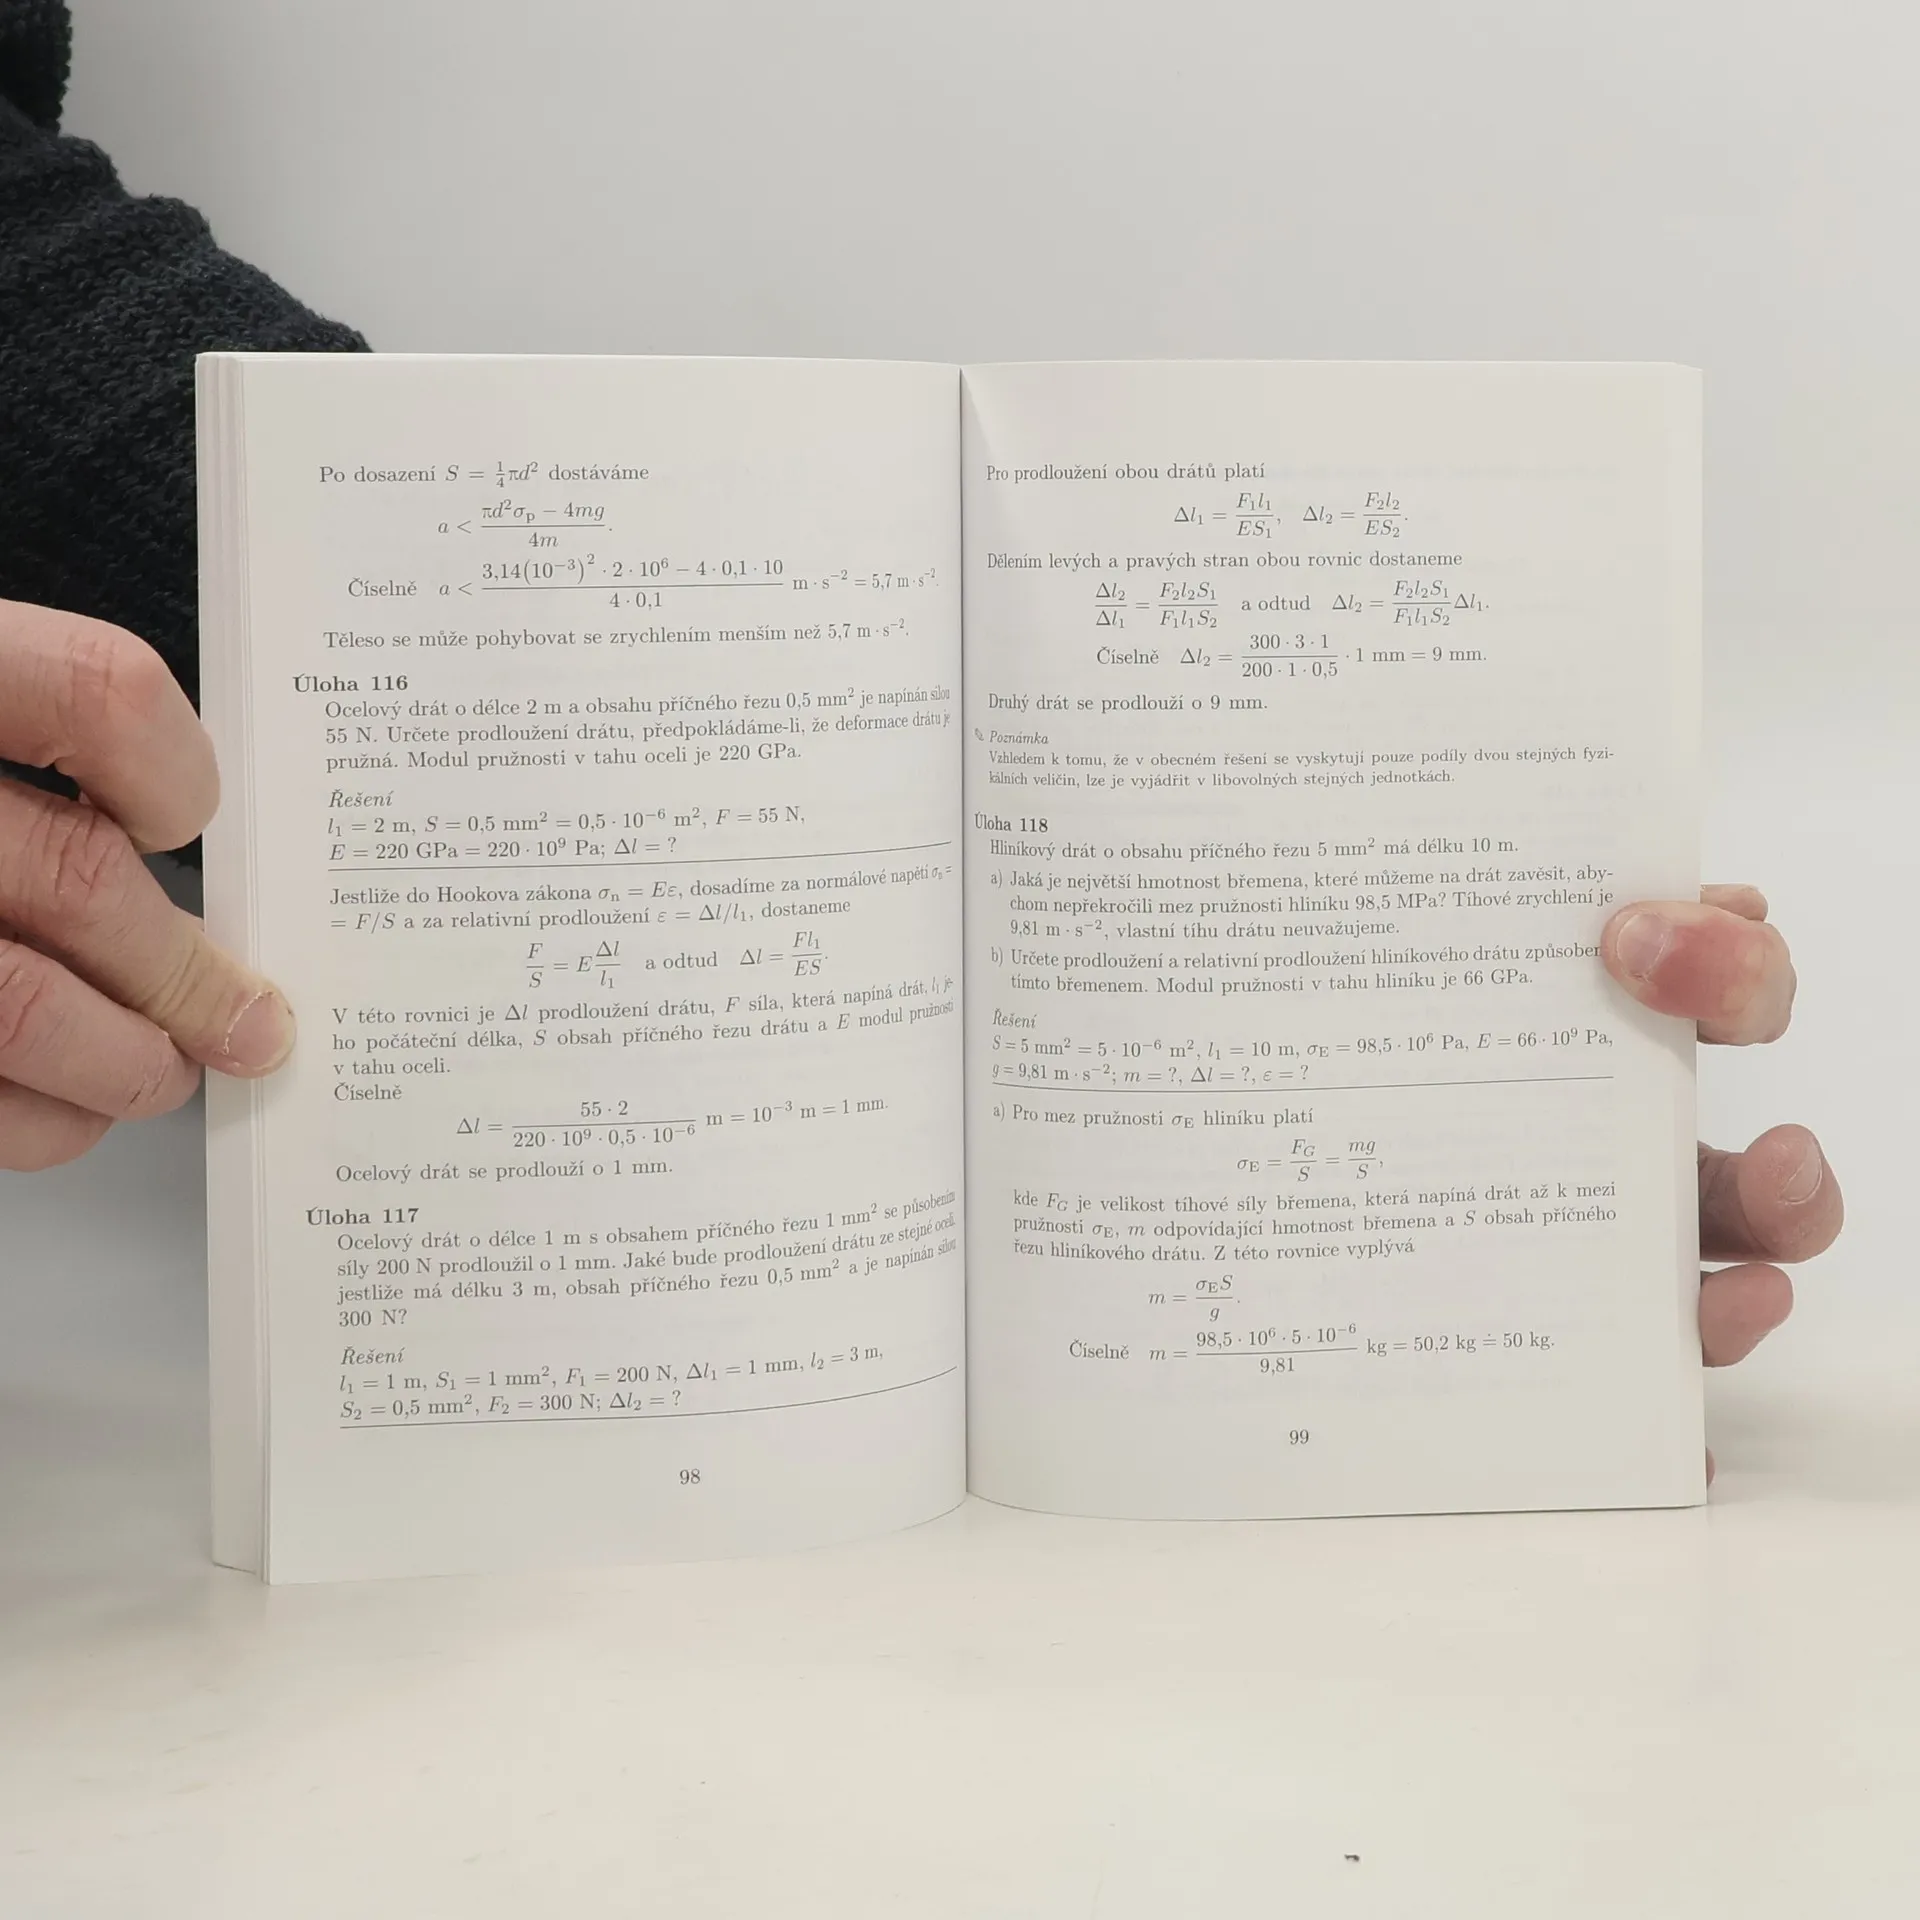 Po dosazení S = 1/4 πd² dostáváme
a < (πd²σₚ − 4mg)/(4m).
Číselně a < (3,14(10⁻³)² · 2 · 10⁶ − 4 · 0,1 · 10)/(4 · 0,1) m · s⁻² = 5,7 m · s⁻².
Těleso se může pohybovat se zrychlením menším než 5,7 m · s⁻².
Úloha 116
Ocelový drát o délce 2 m a obsahu příčného řezu 0,5 mm² je napínán silou
55 N. Určete prodloužení drátu, předpokládáme-li, že deformace drátu je
pružná. Modul pružnosti v tahu oceli je 220 GPa.
Řešení
l₁ = 2 m, S = 0,5 mm² = 0,5 · 10⁻⁶ m², F = 55 N,
E = 220 GPa = 220 · 10⁹ Pa; Δl = ?
Jestliže do Hookova zákona σₙ = Eε, dosadíme za normálové napětí σₙ =
= F/S a za relativní prodloužení ε = Δl/l₁, dostaneme
F/S = E Δl/l₁ a odtud Δl = Fl₁/ES.
V této rovnici je Δl prodloužení drátu, F síla, která napíná drát, l₁ je-
ho počáteční délka, S obsah příčného řezu drátu a E modul pružnosti
v tahu oceli.
Číselně
Δl = (55 · 2)/(220 · 10⁹ · 0,5 · 10⁻⁶) m = 10⁻³ m = 1 mm.
Ocelový drát se prodlouží o 1 mm.
Úloha 117
Ocelový drát o délce 1 m s obsahem příčného řezu 1 mm² se působením
síly 200 N prodloužil o 1 mm. Jaké bude prodloužení drátu ze stejné oceli,
jestliže má délku 3 m, obsah příčného řezu 0,5 mm² a je napínán silou
300 N?
Řešení
l₁ = 1 m, S₁ = 1 mm², F₁ = 200 N, Δl₁ = 1 mm, l₂ = 3 m,
S₂ = 0,5 mm², F₂ = 300 N; Δl₂ = ?
98
Pro prodloužení obou drátů platí
Δl₁ = F₁l₁/ES₁, Δl₂ = F₂l₂/ES₂.
Dělením levých a pravých stran obou rovnic dostaneme
Δl₂/Δl₁ = F₂l₂S₁/F₁l₁S₂ a odtud Δl₂ = F₂l₂S₁/F₁l₁S₂ Δl₁.
Číselně Δl₂ = (300 · 3 · 1)/(200 · 1 · 0,5) · 1 mm = 9 mm.
Druhý drát se prodlouží o 9 mm.
Poznámka
Vzhledem k tomu, že v obecném řešení se vyskytují pouze podíly dvou stejných fyzi-
kálních veličin, lze je vyjádřit v libovolných stejných jednotkách.
Úloha 118
Hliníkový drát o obsahu příčného řezu 5 mm² má délku 10 m.
a) Jaká je největší hmotnost břemena, které můžeme na drát zavěsit, aby-
chom nepřekročili mez pružnosti hliníku 98,5 MPa? Tíhové zrychlení je
9,81 m · s⁻², vlastní tíhu drátu neuvažujeme.
b) Určete prodloužení a relativní prodloužení hliníkového drátu způsoben
tímto břemenem. Modul pružnosti v tahu hliníku je 66 GPa.
Řešení
S = 5 mm² = 5 · 10⁻⁶ m², l₁ = 10 m, σE = 98,5 · 10⁶ Pa, E = 66 · 10⁹ Pa,
g = 9,81 m · s⁻²; m = ?, Δl = ?, ε = ?
a) Pro mez pružnosti σE hliníku platí
σE = FG/S = mg/S,
kde FG je velikost tíhové síly břemena, která napíná drát až k mezi
pružnosti σE, m odpovídající hmotnost břemena a S obsah příčného
řezu hliníkového drátu. Z této rovnice vyplývá
m = σES/g.
Číselně m = (98,5 · 10⁶ · 5 · 10⁻⁶)/9,81 kg = 50,2 kg ≐ 50 kg.
99